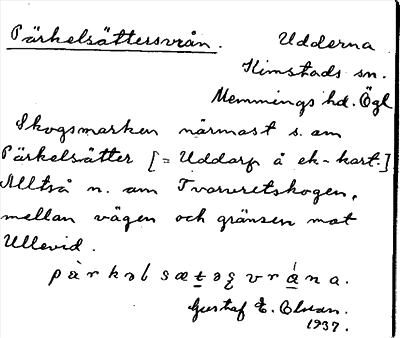 Pärkelsättersvrån. Udderna
Kimstads sn.
Memmings hd. Ögl
Skogsmarken närmast s. om
Pärkelsätter [= Uddarp å ek-kart.]
Alltså n. om
mellan vägen och gränsen mot
Ullevid.
pàrkəlsætəʂvrána.
Gustaf E. Olsson.
1937.